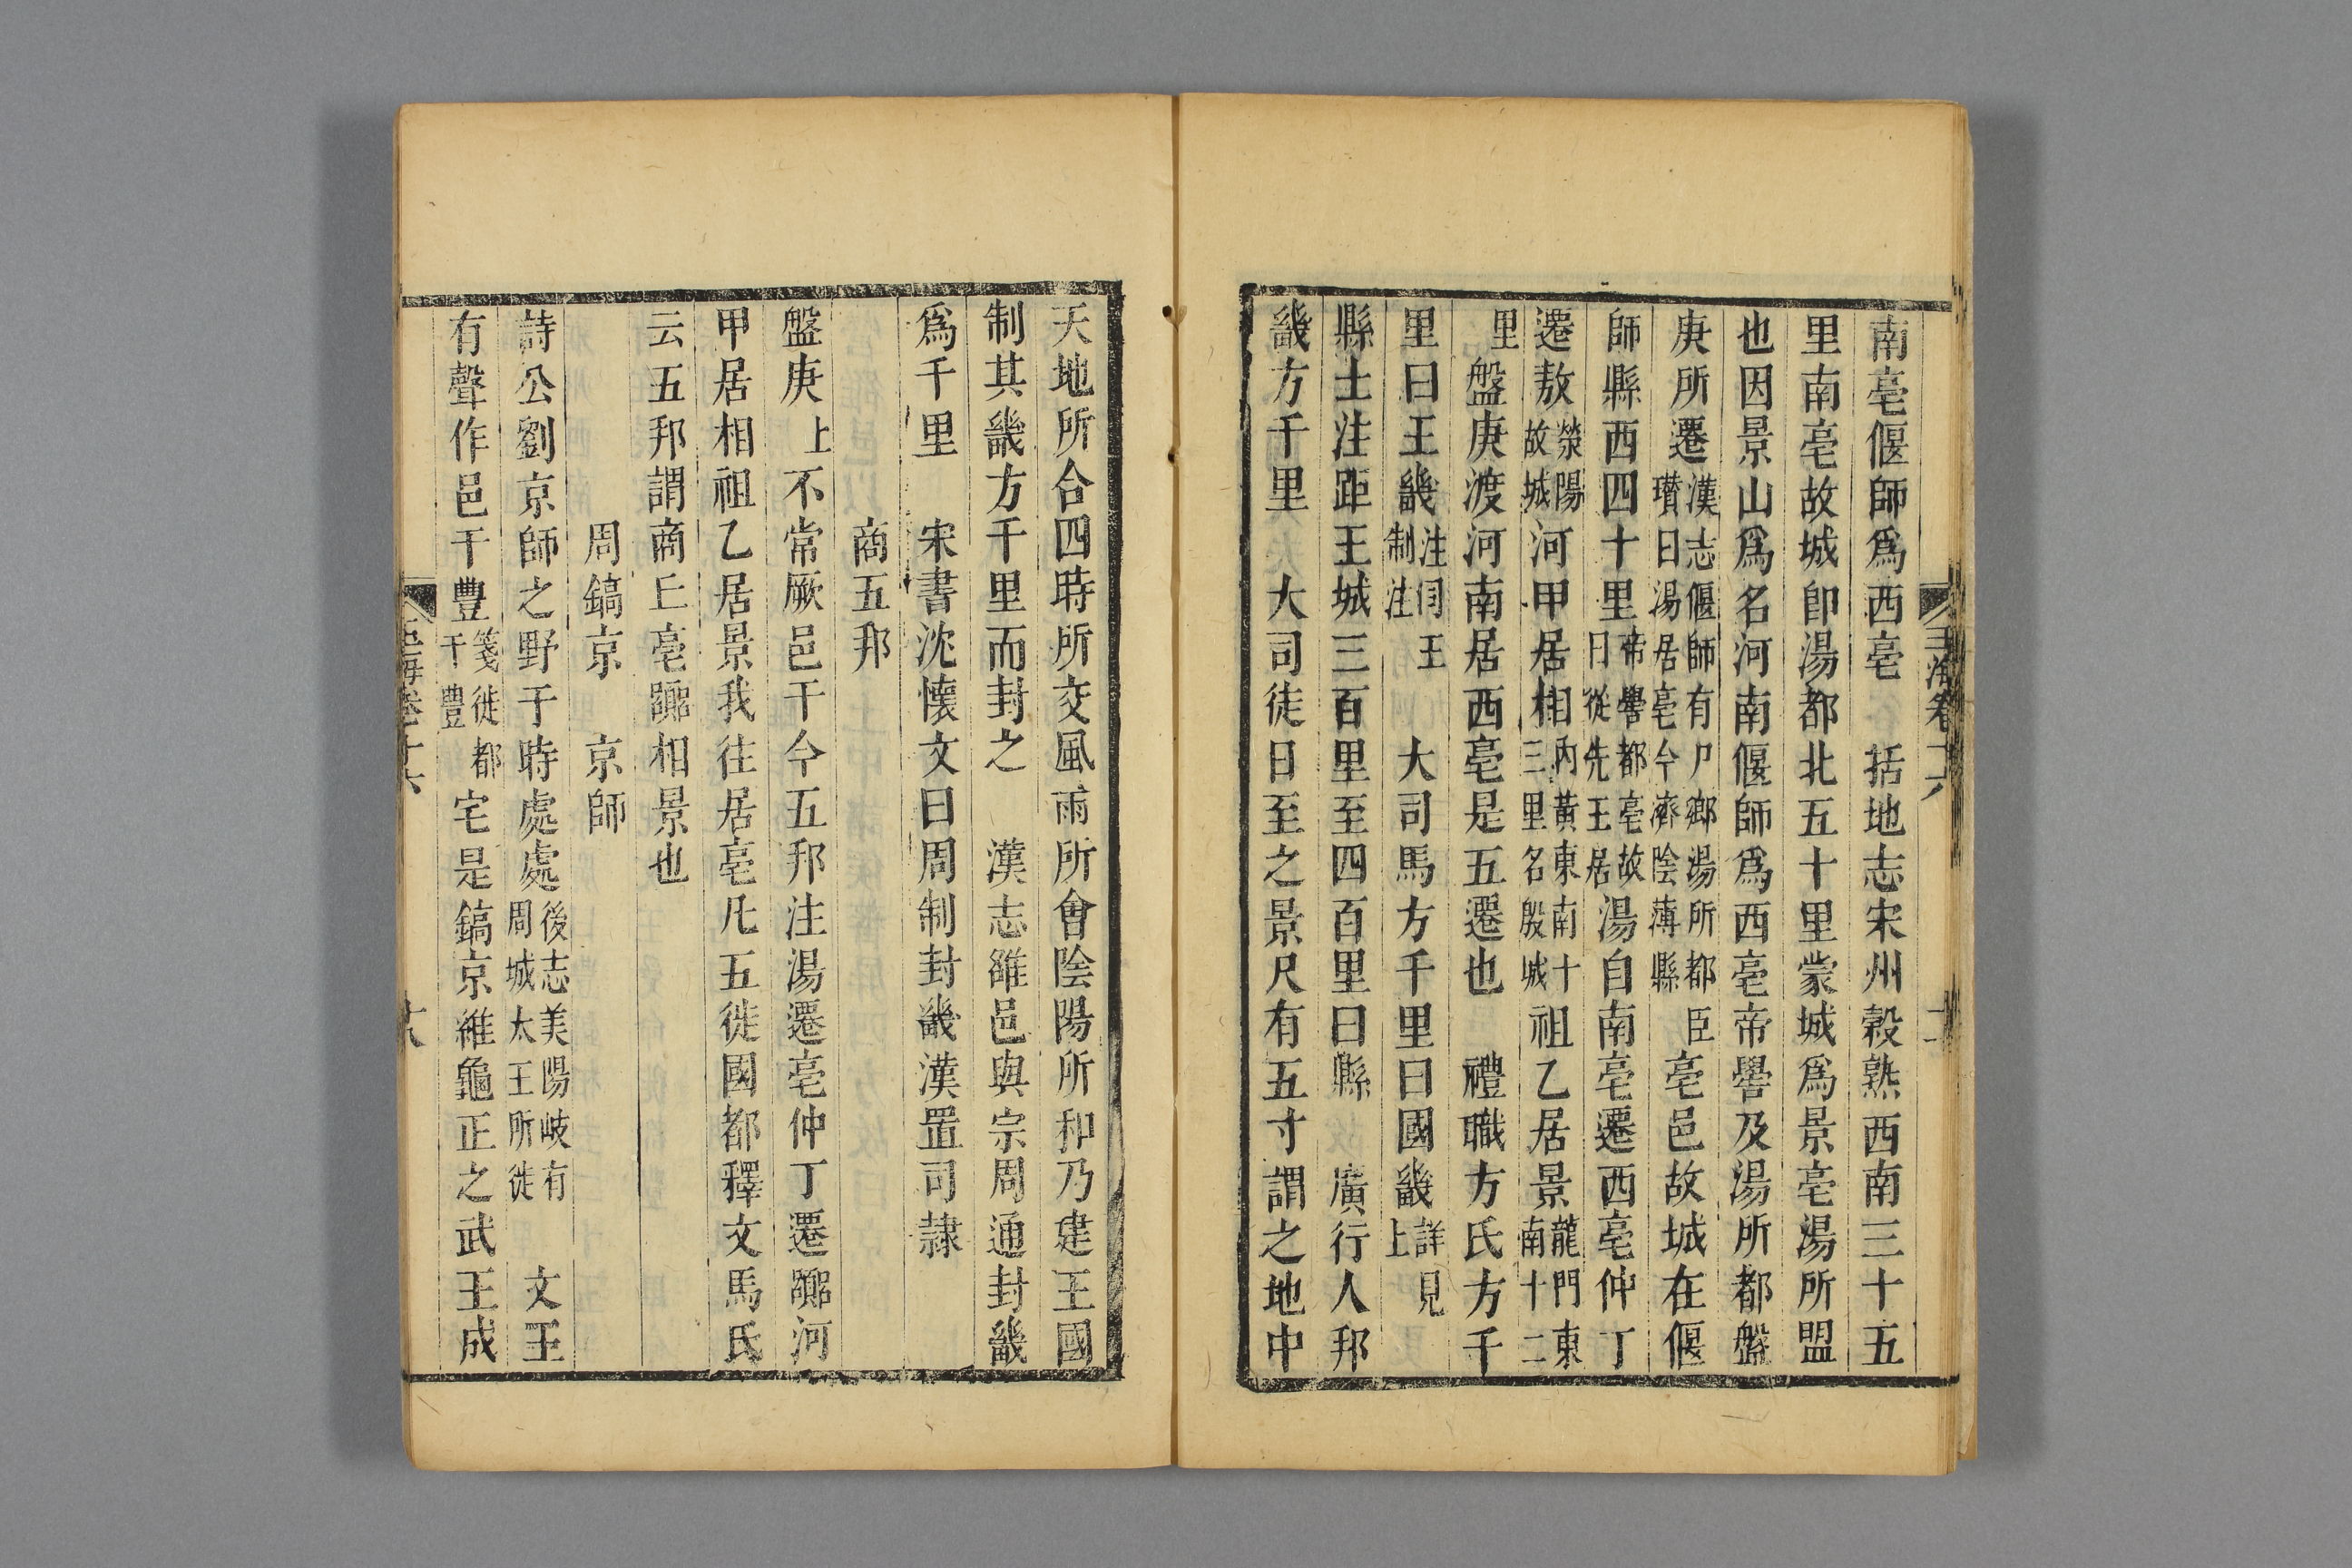 南亳偃師爲西亳 括地志宋州穀熟西南三十五
里南亳故城卽湯都北五十里蒙城爲景亳湯所盟
也因景山爲名河南偃師爲西亳帝嚳及湯所都盤
庚所遷漢志偃師有尸鄉湯所都臣瓉曰湯居亳今濟陰薄縣亳邑故城在偃
師縣西四十里帝嚳都亳故曰從先王居湯自南亳遷西亳仲丁
遷敖滎陽故城河甲居相內黃東南十三里名殷城祖乙居景龍門東南十二
里盤庚渡河南居西亳是五遷也 禮職方氏方千
里曰王畿注同王制注 大司馬方千里曰國畿詳見上
縣士注距王城三百里至四百里曰縣 廣行人邦
畿方千里 大司徒日至之景尺有五寸謂之地中
玉海卷十六
天地所合四時所交風雨所會陰陽所和乃建王國
制其畿方千里而封之 漢志雒邑與宗周通封畿
爲千里 宋書沈懷文曰周制封畿漢置司隷
商五邦
盤庚上不常厥邑于今五邦注湯遷亳仲丁遷嚻河
甲居相祖乙居景我往居亳凡五徙國都釋文馬氏
云五邦謂商丘亳嚻相景也
周鎬京 京師
詩公劉京師之野于時處處後志美陽岐有周城太王所徙 文王
有聲作邑于豐箋徙都于豐宅是鎬京維龜正之武王成
玉海卷十六
十八